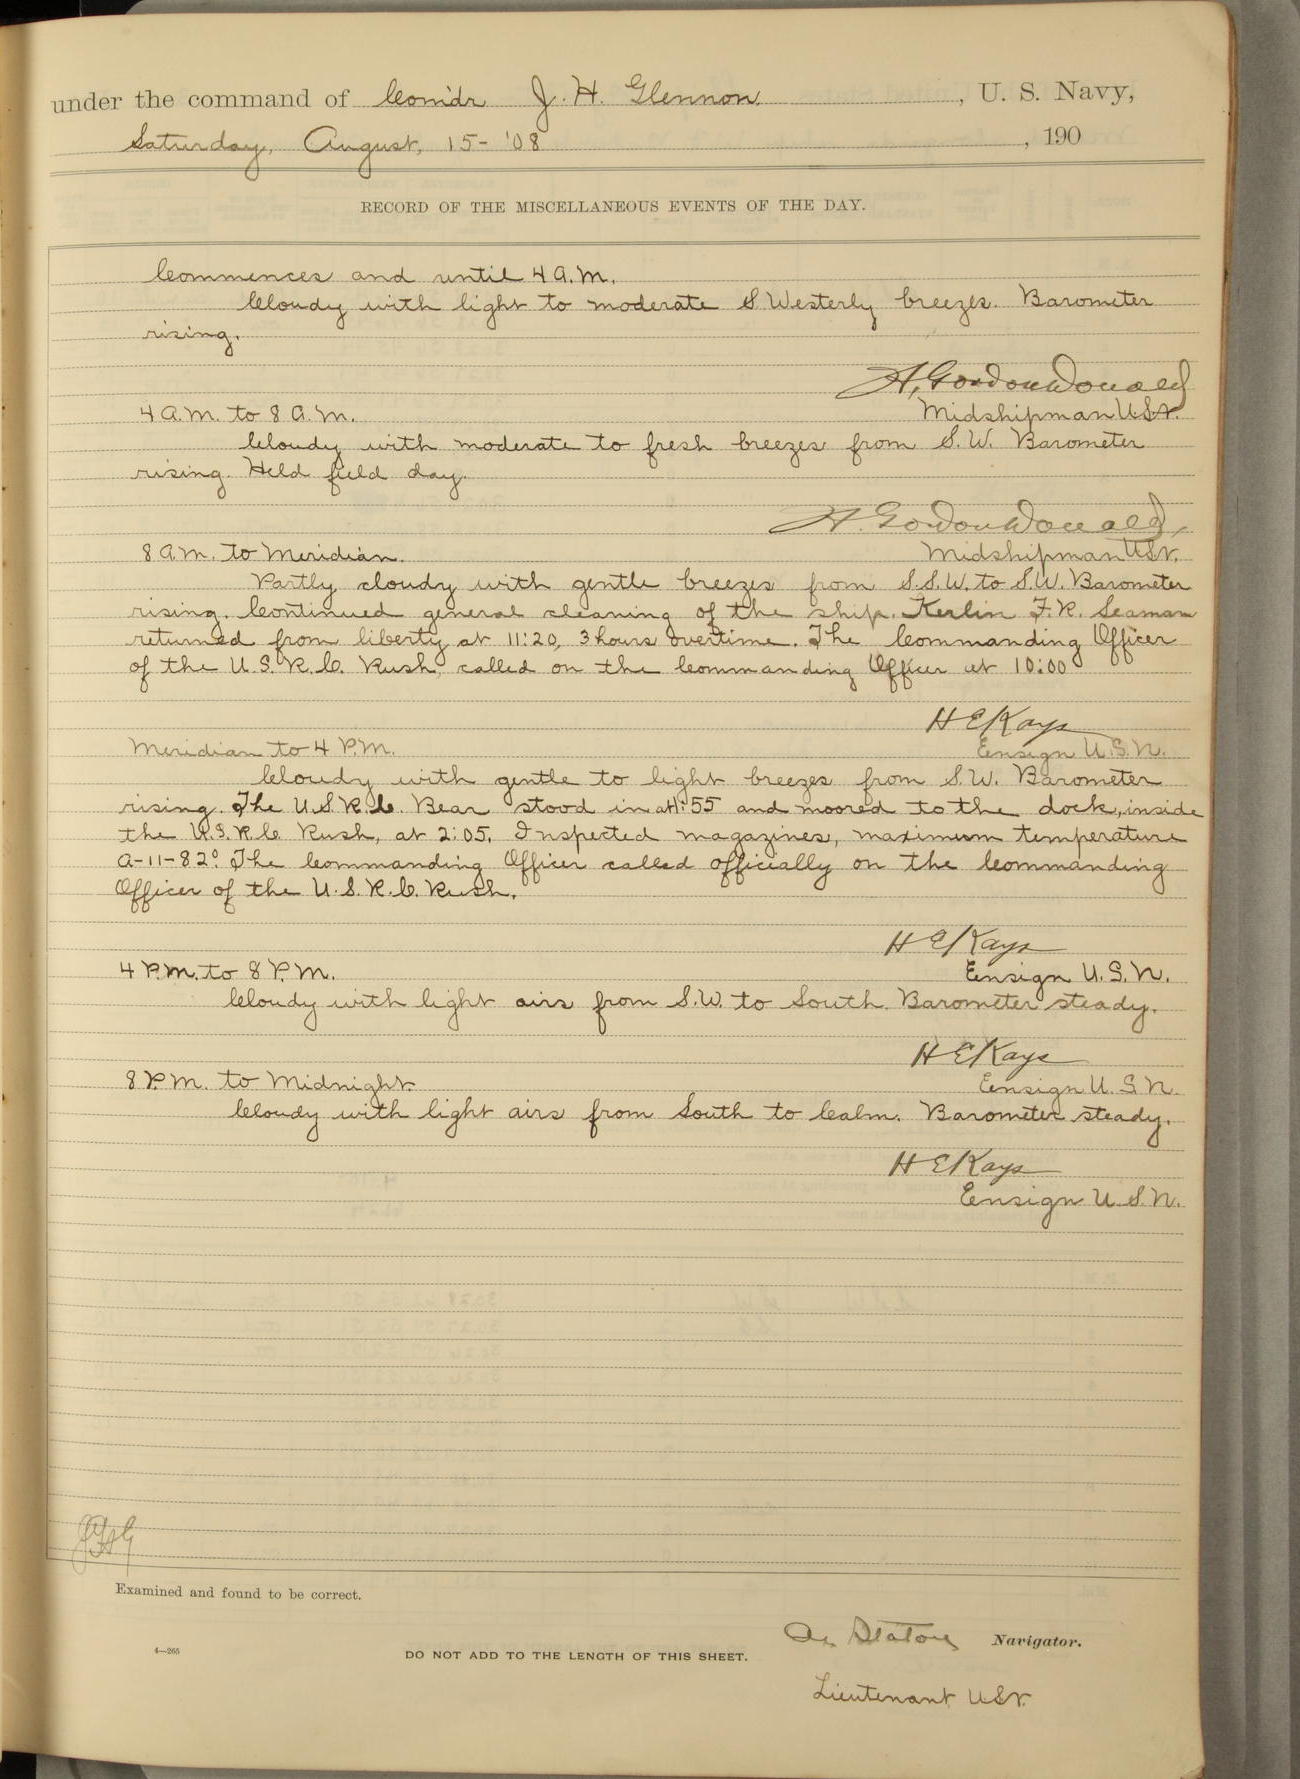 under the command of Comdr J. H. Glennon, U. S. Navy,
Saturday, August, 15- '08, 190
RECORD OF THE MISCELLANEOUS EVENTS OF THE DAY.
Commences and until 4 A.M.
Cloudy with light to moderate S Westerly breezes. Barometer
rising.
A. Gordon Donald
Midshipman U.S.N.
4 A.M. to 8 A.M.
Cloudy with moderate to fresh breezes from S.W. Barometer
rising. Held field day.
A. Gordon Donald,
Midshipman U.S.N.
8 A.M. to Meridian.
Partly cloudy with gentle breezes from S.S.W. to S.W. Barometer
rising. Continued general cleaning of the ship. Kerlin F.R. Seaman
returned from liberty at 11:20, 3 hours overtime. The Commanding Officer
of the U.S.R.C. Rush, called on the Commanding Officer at 10:00
H E Kays
Ensign U.S.N.
Meridian to 4 P.M.
Cloudy with gentle to light breezes from S.W. Barometer
rising. The U.S.R.C. Bear stood in at 1:55 and moored to the dock, inside
the U.S.R.C. Rush, at 2:05. Inspected magazines, maximum temperature
A-11-82° The Commanding Officer called officially on the Commanding
Officer of the U.S.R.C. Rush.
H E Kays
Ensign U.S.N.
4 P.M. to 8 P.M.
Cloudy with light airs from S.W. to South. Barometer steady.
H E Kays
Ensign U.S.N.
8 P.M. to Midnight.
Cloudy with light airs from South to Calm. Barometer steady.
H E Kays
Ensign U.S.N.
JHG
Examined and found to be correct.
Navigator.
4—265
DO NOT ADD TO THE LENGTH OF THIS SHEET.
Lieutenant U.S.N.